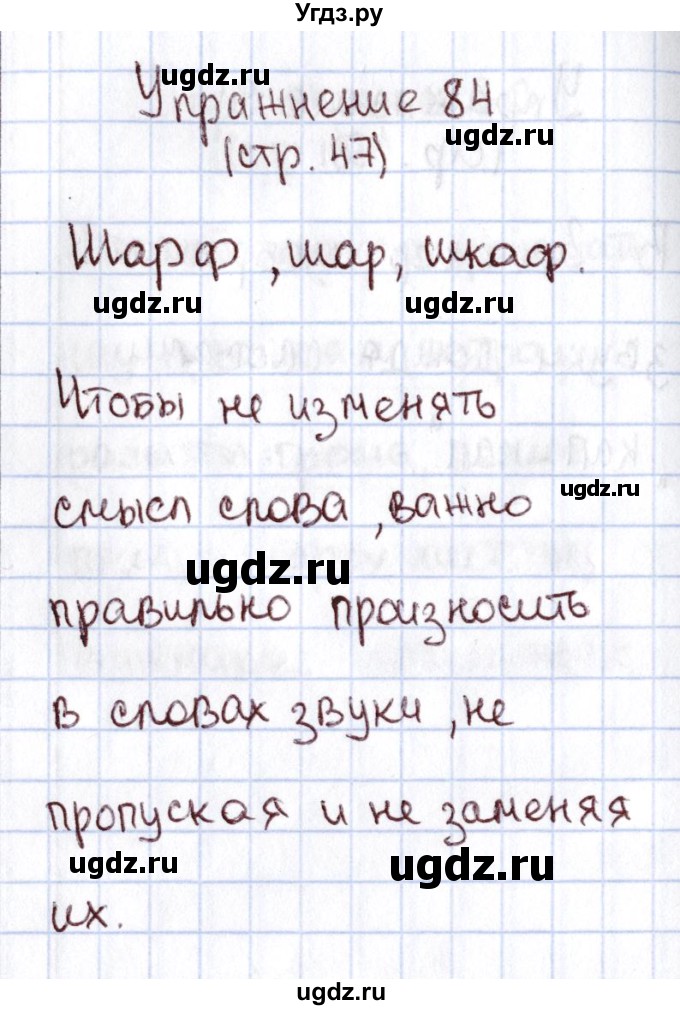 Угдз.ру
ugdz.ru
Упражнение 84
ugdz.ru
(стр. 47)
Шарф, шар, шкаф.
ugdz.ru ugdz.ru
Чтобы не изменять
ugdz.ru
смысл слова, важно
ugdz.ru
правильно произносить
в словах звуки, не
пропуская и не заменяя
ugdz.ru ugdz.ru
их.
ugdz.ru